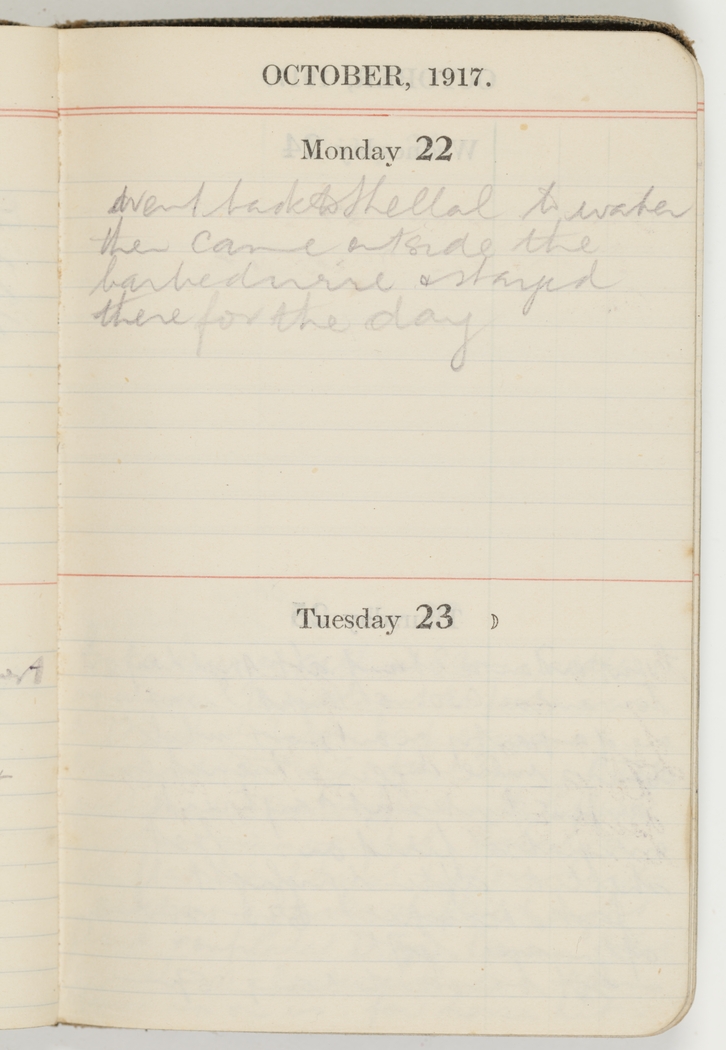 OCTOBER, 1917.
Monday 22
went back to Shellal to water
then came outside the
barbedwire & stayed
there for the day
Tuesday 23